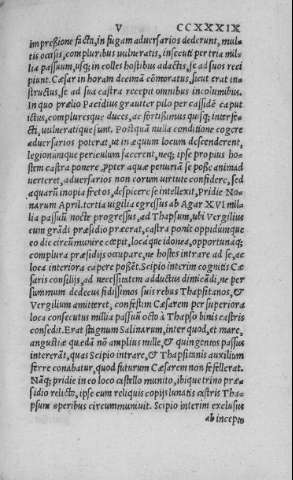 V CCXXXIX
impreßione facta, in fugam aduersarios dederunt, mul-
tis occisis, compluribus uulneratis, insecuti per tria mil-
lia passuum, usq; in colles hostibus adactis, se ad suos reci
piunt. Cæsar in horam decimā cōmoratus, sicut erat in-
structus, se ad sua castra recepit omnibus incolumibus.
In quo prælio Pacidius grauiter pilo per caßidē caput
ictus, compluresque duces, ac fortißimus quisq; interfe-
cti, uulneratique sunt. Postquā nulla conditione cogere
aduersarios poterat, ut in æquum locum descenderent,
legionumque periculum facerent, neq; ipse propius ho-
stem castra ponere, ppter aquæ penuriā se posse animad
uerteret, aduersarios non eorum uirtute confidere, sed
aquarū inopia fretos, despicere se intellexit, Pridie No-
narum April. tertia uigilia egressus ab Agar XVI mil-
lia passuū nocte progressus, ad Thapsum, ubi Vergilius
cum grādi præsidio præerat, castra ponit oppidumque
eo die circūmunire cœpit, loca que idonea, opportunaq;
complura præsidijs occupare, ne hostes intrare ad se, ac
loca interiora capere possēt. Scipio interim cognitis Cæ
saris consilijs, ad necessitatem adductus dimicādi, ne per
summum dedecus fidissimos suis rebus Thapsitanos, &
Vergilium amitteret, confestim Cæsarem per superiora
loca consecutus millia passuū octo à Thapso binis castris
consedit. Erat stagnum Salinarum, inter quod, et mare,
angustiæ quædā nō amplius mille, & quingentos passus
intererāt, quas Scipio intrare, & Thapsitanis auxilium
ferre conabatur, quod futurum Cæsarem non fefellerat.
Nāq; pridie in eo loco castello munito, ibique trino præ-
sidio relicto, ipse cum reliquis copijs lunatis castris Tha-
psum operibus circummuniuit. Scipio interim exclusus
ab incepto